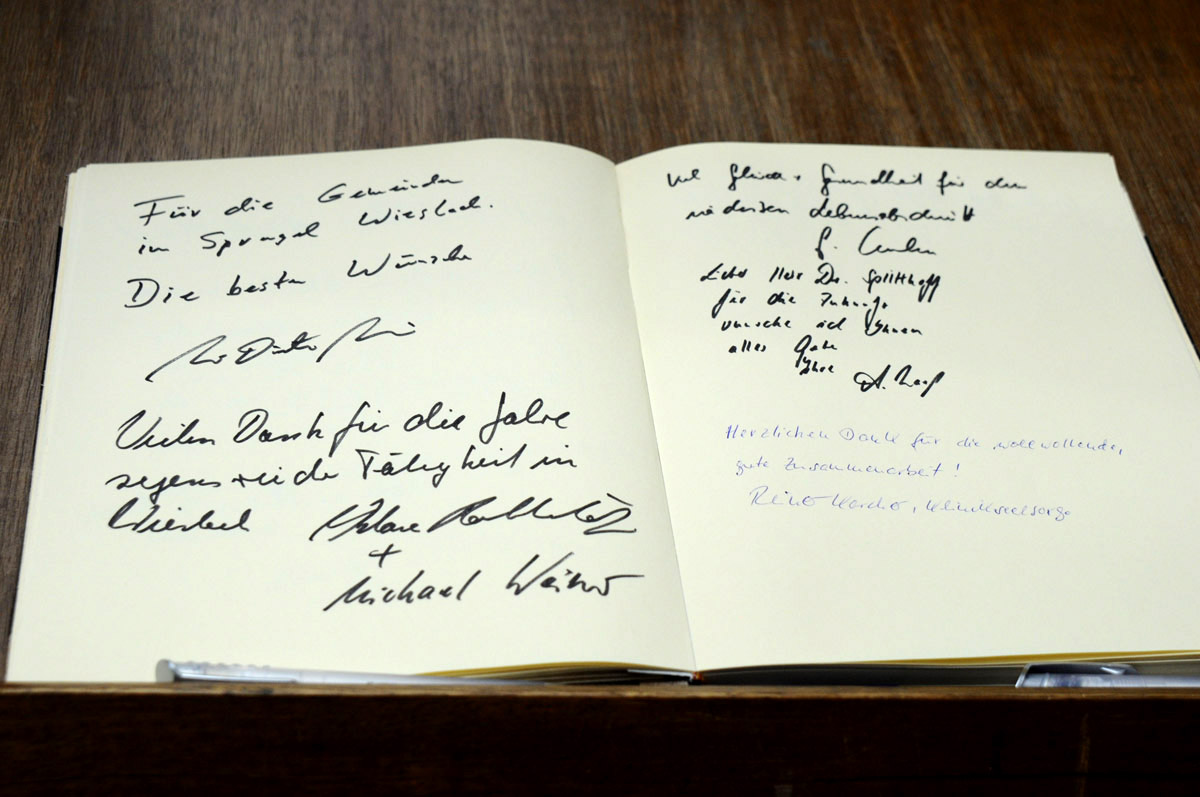 Für die Gemeinden
im Sprengel Wiesloch.
Die besten Wünsche
Vielen Dank für die Jahre
segensreiche Tätigkeit in
Wiesloch
+
Michael
viel Glück + Gesundheit für den
nächsten Lebensabschnitt
Lieber Herr Dr. Splitthoff
für die Zukunft
wünsche ich Ihnen
alles Gute
Ihre
Herzlichen Dank für die wohlwollende,
gute Zusammenarbeit!
Klinikseelsorge